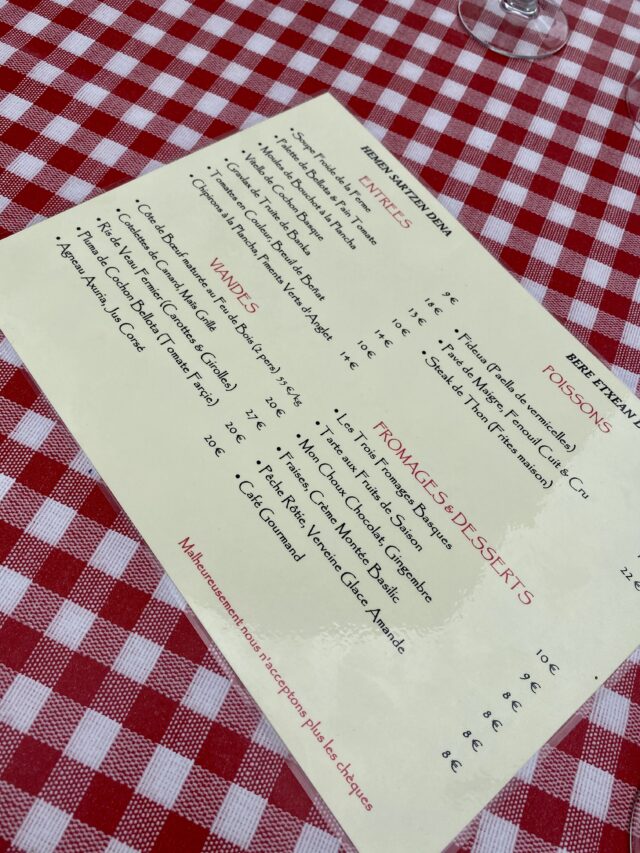 HEMEN SARTZEN DENA
ENTREES
• Soupe Froide de la Ferme 9 €
• Palette de Bellota & Pain Tomate 18 €
• Moules de Bouchot à la Plancha 13 €
• Vitello de Cochon Basque 10 €
• Gravlax de Truite de Banka 14 €
• Tomates en Couleur, Breuil de Behat 10 €
• Chipirons à la Plancha, Piments Verts d'Anglet 14 €
VIANDES
• Côtes de Bœuf maturée au Feu de Bois (2 pers) €/Kg
• de Canard, Maïs Grillé 20 €
• Ris de Veau Fermier (Carottes & Girolles) 27 €
• Pluma de Cochon Bellota (Tomate Farçie) 20 €
• Agneau Axuria, Jus Corsé 20 €
BERE ETXEAN
POISSONS
• Fideua (Paella de vermicelles)
• Pavé de Maigre, Fenouil Cuit & Cru
• Steak de Thon (Frites maison) 22 €
FROMAGES & DESSERTS
• Les Trois Fromages Basques 10 €
• Tarte aux Fruits de Saison 9 €
• Mon Choux Chocolat, Gingembre 8 €
• Fraises, Crème Montée Basilic 8 €
• Pêche Rôtie, Verveine Glace Amande 8 €
• Café Gourmand 8 €
Malheureusement nous n'acceptons plus les chèques